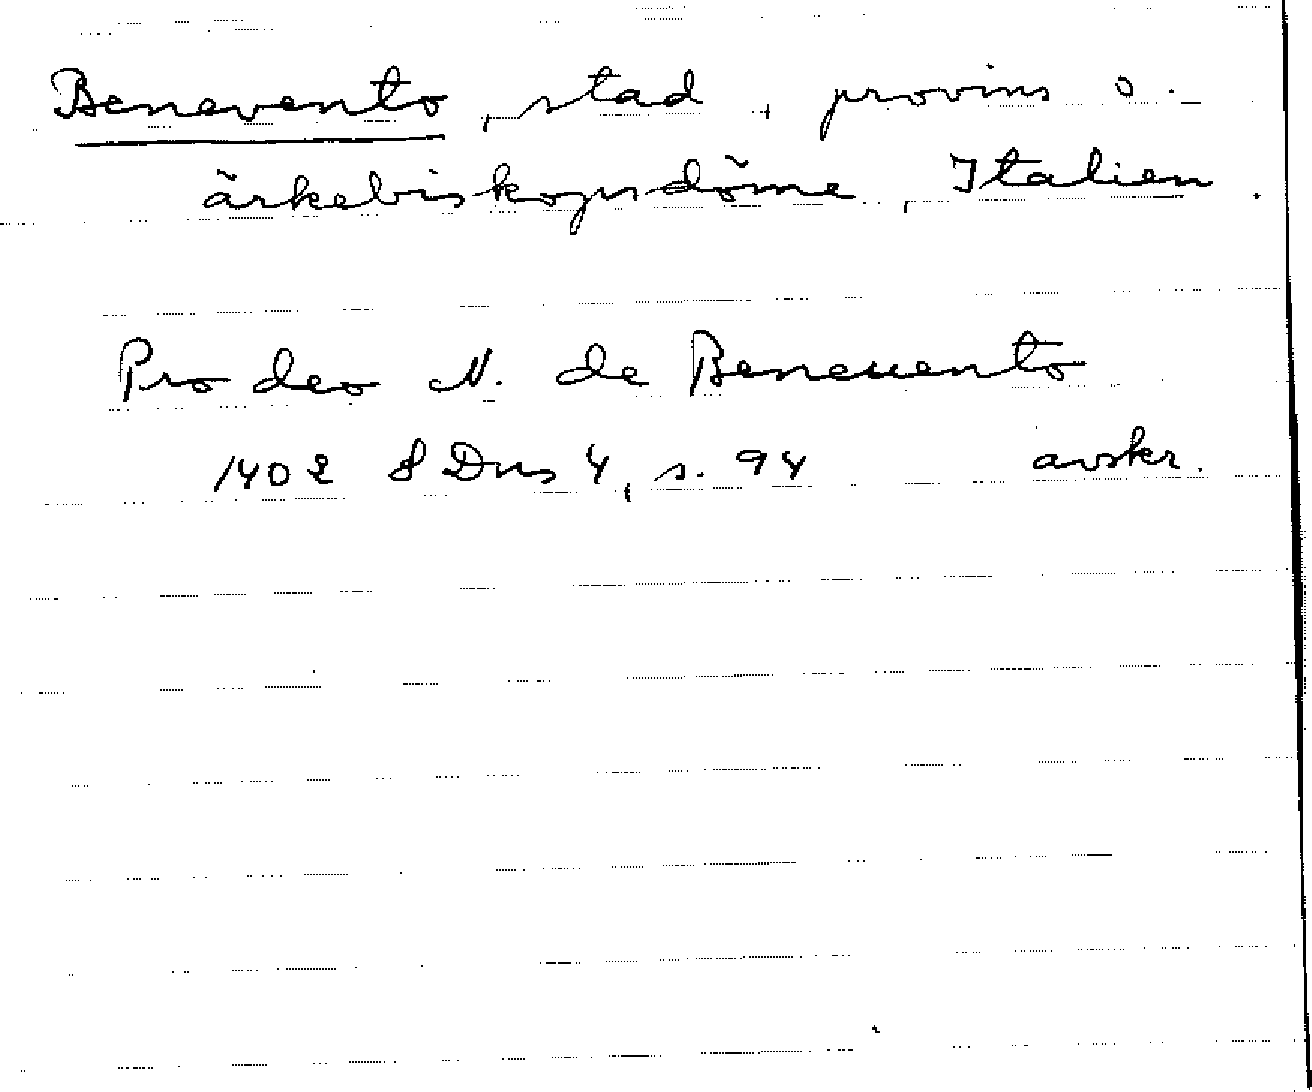 Benevento, stad, provins o.
ärkebiskopsdöme, Italien.
Pro deo N. de Beneuento
1402 8 Dns 4, s. 94 avskr.